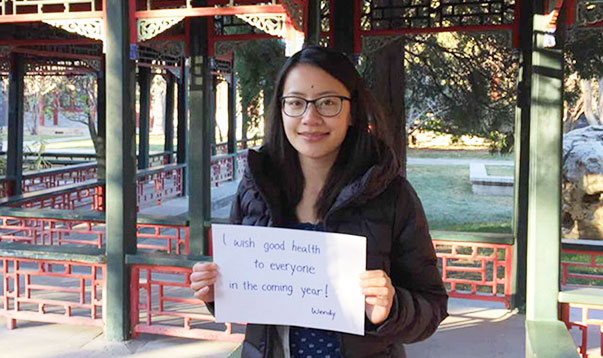 I wish good health
to everyone
in the coming year!
Wendy